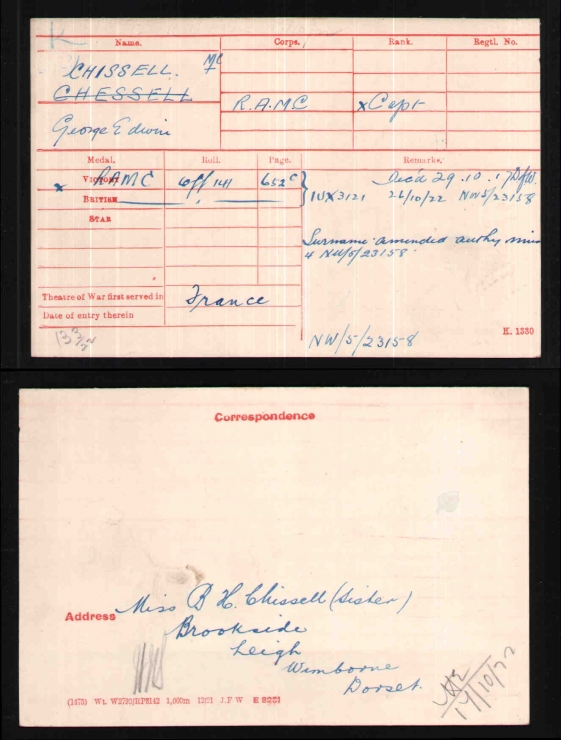 K
Name. Corps. Rank. Regtl. No.
CHISSELL. MC
CHESSELL
R.A.M.C xCapt
George Edwin
Medal. Roll. Page. Remarks.
VICTORY RAMC Off 141 652C Dec'd 29.10.17 DofW.
x BRITISH IVX3121 26/10/22 NW5/23158
STAR
Surname amended authy min
4 NW/5/23158
Theatre of War first served in France
Date of entry therein
NW/5/23158
K. 1330
Correspondence
Address Miss B H. Chissell (sister)
Brookside
Leigh
Wimborne
Dorset.
17/10/22
(1473) Wt. W2793/RP2142 1,000m 12/21 J.F W E 8221